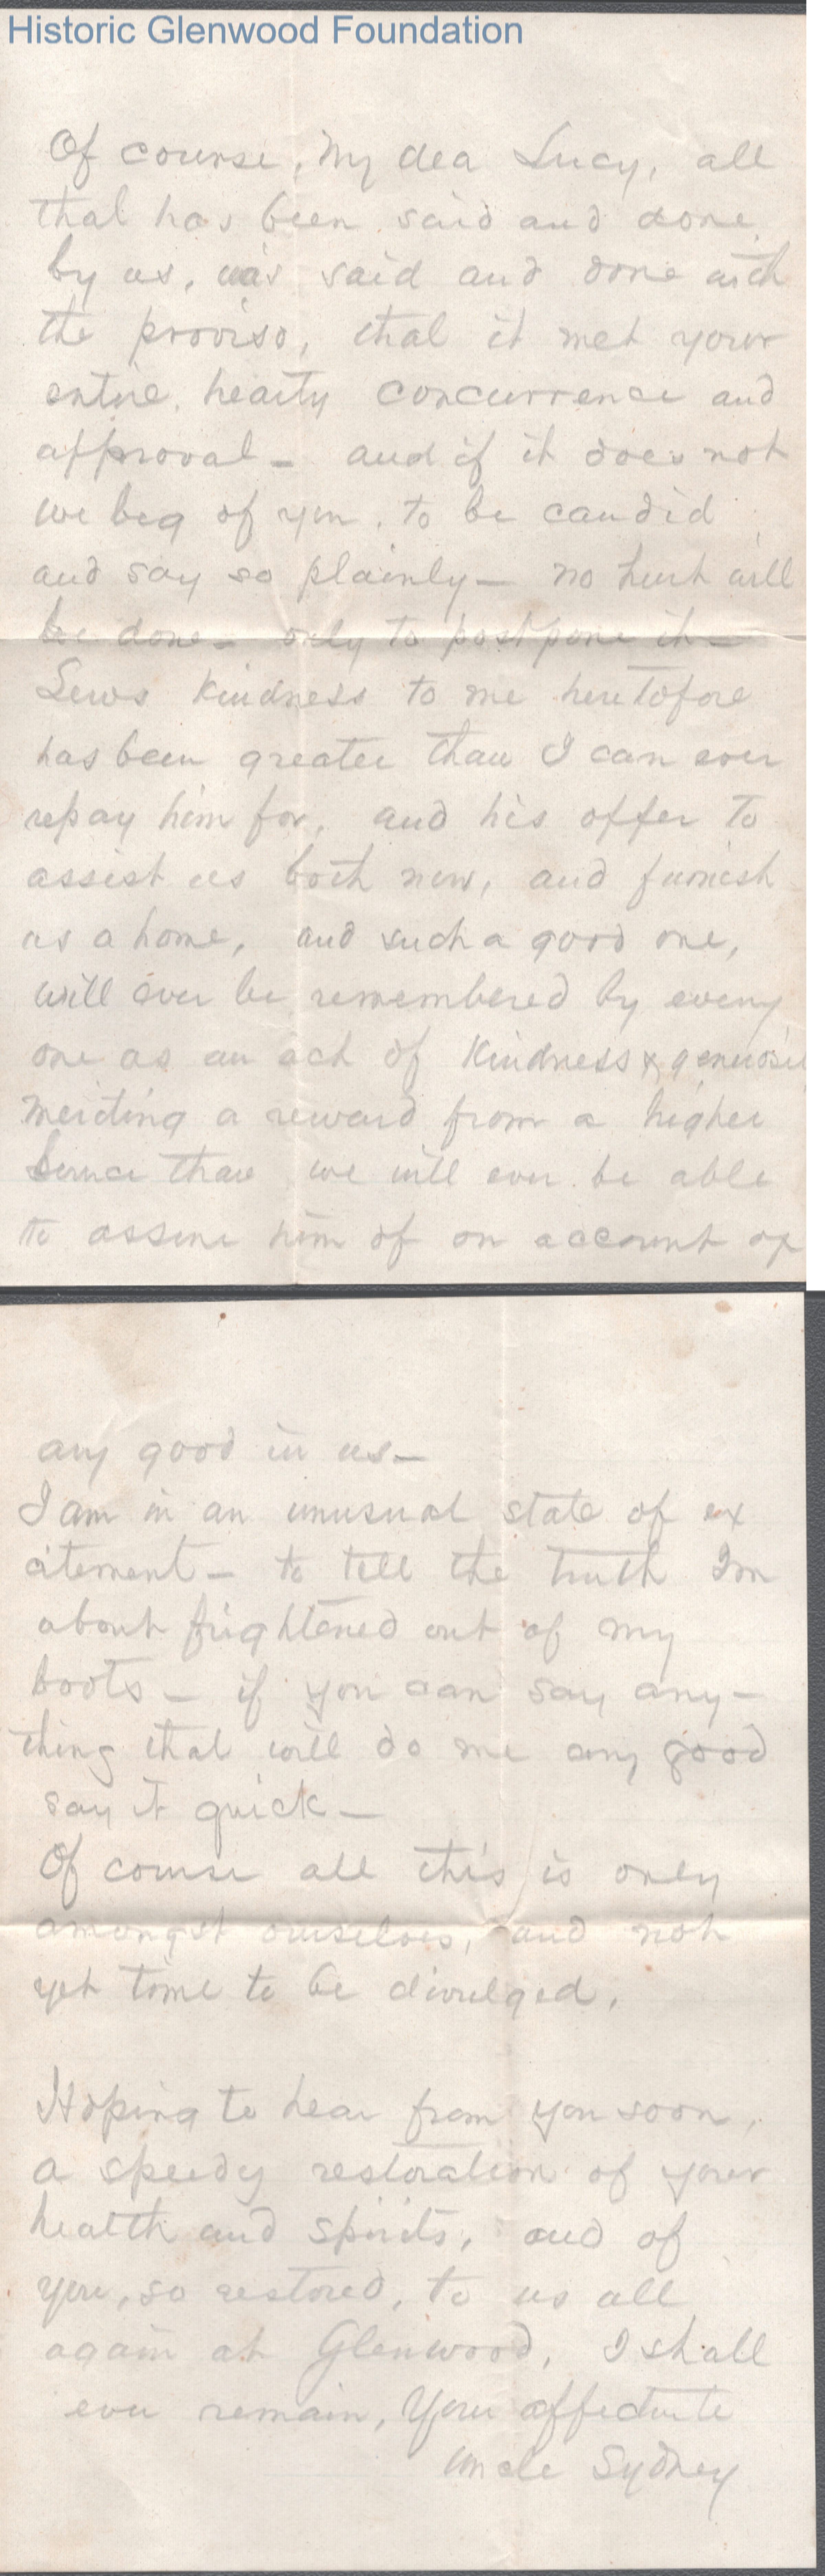 Historic Glenwood Foundation
Of course, my dea Lucy, all
that has been said and done
by us, was said and done with
the proviso, that it met your
entire, hearty concurrence and
approval — and if it does not
we beg of you, to be candid
and say so plainly — no hurt will
be done — only to postpone it —
Lews kindness to me heretofore
has been greater than I can ever
repay him for, and his offer to
assist us both now, and furnish
us a home, and such a good one,
will ever be remembered by every
one as an act of kindness & generosi
meriting a reward from a higher
than we will ever be able
to assure him of on account of
any good in us —
I am in an unusual state of ex
citement — to tell the truth Im
about frightened out of my
boots — if you can say any —
thing that will do me any good
say it quick —
Of course all this is only
amongst ourselves, and not
yet time to be divulged.
Hoping to hear from you soon,
a speedy restoration of your
health and spirits, and of
you, so restored, to us all
again at Glenwood, I shall
ever remain, Your affectnte
Uncle Sydney